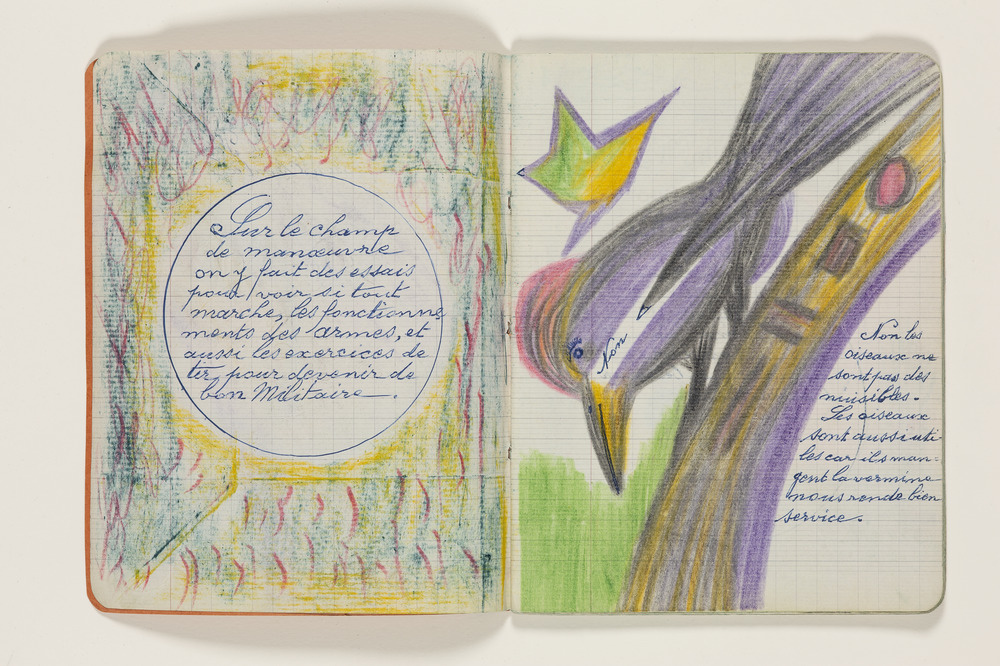 Sur le champ
de manœuvre
on y fait des essais
pour voir si tout
marche, les fonctionne
ments des armes, et
aussi les exercices de
tir, pour devenir de
bon Militaire.
Non
Non les
oiseaux ne
sont pas des
nuisibles.
Les oiseaux
sont aussi uti
les car ils man=
gent la vermine
nous rende bien
service.